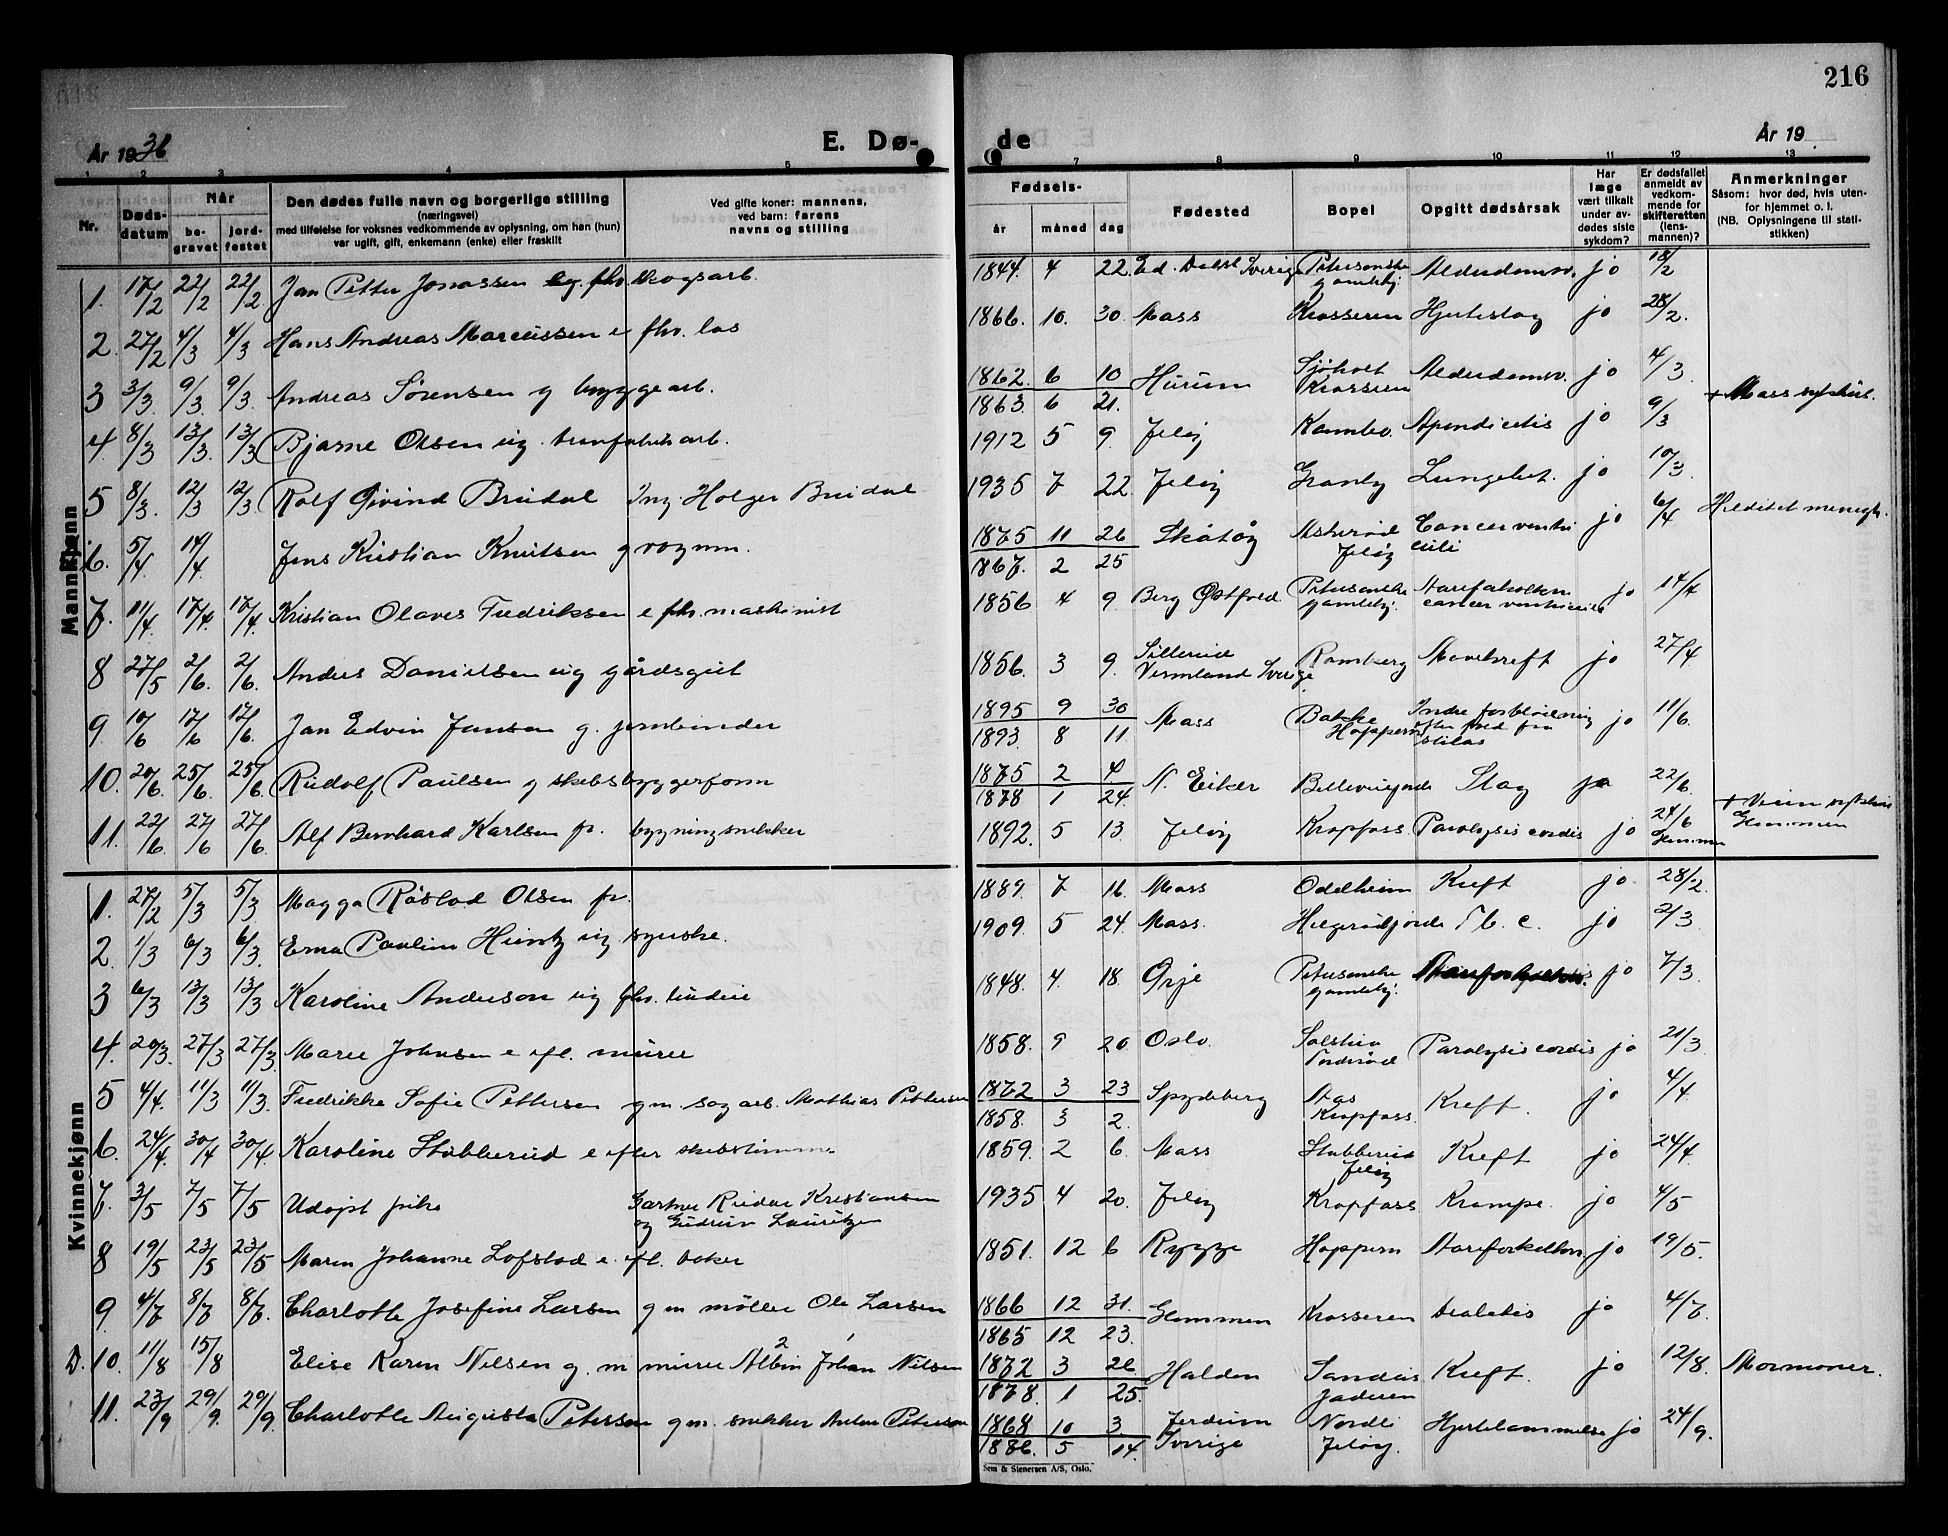 216
År 1936
E. Dø-
de
År 19
1 2 3 4 5
7 8 9 10 11 12 13
Nr.
Døds-
datum
Når
be-
gravet
jord-
festet
Den dødes fulle navn og borgerlige stilling
(næringsvei)
med tilføielse for voksnes vedkommende av oplysning, om han (hun)
var ugift, gift, enkemann (enke) eller fraskilt
Ved gifte koner: mannens,
ved barn: farens
navns og stilling
Fødsels-
år
måned
dag
Fødested
Bopel
Opgitt dødsårsak
Har
læge
vært tilkalt
under av-
dødes siste
sykdom?
Er dødsfallet
anmeldt av
vedkom-
mende for
skifteretten
(lens-
mannen)?
Anmerkninger
Såsom: hvor død, hvis uten-
for hjemmet o. l.
(NB. Oplysningene til stati-
stikken)
Mannkjønn
1. 17/2 22/2 22/2 Jan Petter Jonassen fhv. skogsarb. 1844. 4 22. Ed. Dalsl. Sverige Petersonske gamlehj. Alderdomsv. jo 18/2
2. 27/2 4/3 4/3 Hans Andreas Marcussen e fhv. los 1866. 10. 30. Moss Krosseren Hjerteslag jo 28/2.
3 3/3. 9/3. 9/3. Andreas Sørensen g bryggearb. 1862. 6 10 1863. 6 21. Hurum Sjøholt Krosseren Alderdomsv. jo 4/3 + Moss sykehus.
4. 8/3 13/3. 13/3 Bjarne Olsen ug. arb. 1912 5 9. Jeløy Kambo. Apendicitis jo 9/3
5 8/3. 12/3 12/3. Rolf Øivind Bruidal Ing. Holger Bruidal 1935 7 22 Jeløy Granly Lungebet. jo 10/3
6. 5/4. 14/4. Jens Kristian Knutsen g vognm. 1875 11 26 1867. 2 25 Skåtøy Jeløy Cancer ventriculi jo 6/4
7. 11/4. 17/4. 17/4. Kristian Olaves Fredriksen e fhv. maskinist 1856 4 9. Berg Østfold Petersonske gamlehj. cancer ventriculi jo 14/4
8 27/5 2/6. 2/6. Anders Danielsen ug gårdsgut 1856. 3 9. Sillerud Vermland Sverige Ramberg Mavekreft jo 27/4
9. 10/6 17/6 17/6. Jan Edvin Jansen g. jernbinder 1895 9 30 1893. 8 11. Moss Bakke Hoppern Indre forblødning efter fald fra stilas jo 11/6.
10. 20/6. 25/6. 25/6. Rudolf Paulsen g skibsbyggerform 1875 2 4. 1878 1 24. N. Eiker Slag jo 22/6.
11. 22/6. 27/6 27/6. Alf Bernhard Karlsen fr. bygningsnekker 1892. 5 13. Jeløy Kropfoss Paralysis cordis jo 24/6 Glemmen + Glemmen
Kvinnekjønn
1. 27/2 5/3 5/3. Magga Røstad Olsen fr. 1889. 7 16. Moss Odelheim Kreft jo. 28/2.
2. 1/3 6/3 6/3. Erna Pauline ug syerske. 1909. 5 24. Moss. Tb. c. jo 2/3.
3 6/3 13/3 13/3 Karoline Anderson ug fhv. 1848. 4. 18. Ørje Petersonske gamlehj. jo 7/3.
4. 20/3. 27/3 27/3. Marie Johnsen e efl. murer 1858. 9 20. Oslo. Paralysis cordis jo 21/3
5 4/4. 11/3 11/3. Fredrikke Sofie Pettersen gm. sagarb. Mathias Pettersen 1872 3 23 1858. 3 2. Spydeberg Aas Kropfoss. Kreft. jo 4/4
6. 24/4. 30/4 30/4. Karoline Stubberud e efter skibstimm 1859. 2 6. Moss Stubberud Jeløy Kreft jo 24/4.
7. 3/5 7/5 7/5 Udøpt pike Gartner Reidar Kristiansen og Gudrun Lauritzen 1935 4 20. Jeløy Kropfoss Krampe. jo 4/5
8 19/5 23/5 23/5 Maren Johanne Lofstad e. efl. baker 1851. 12 6 Rygge Hoppern Åreforkalkn. jo 19/5.
9. 4/7 8/7 8/7. Charlotte Josefine Larsen gm møller Ole Larsen 1866 12 31. 1865 12 23. Glemmen Krosseren jo 4/7.
D. 10. 11/8 15/8 Elise Karen Nilsen g. m murer Albin Johan Nilsen 2 1872 3 26 1878. 1 25. Halden Kreft. jo 12/8. Mormoner.
11. 23/9 29/9. 29/9. Charlotte Augusta Petersen gm. snekker Anton Peterson 1868 10 3. 1886. 5 14. Sverige Nordli Jeløy. Hjertelammelse jo 24/9.
Sem & Stenersen A/S, Oslo.